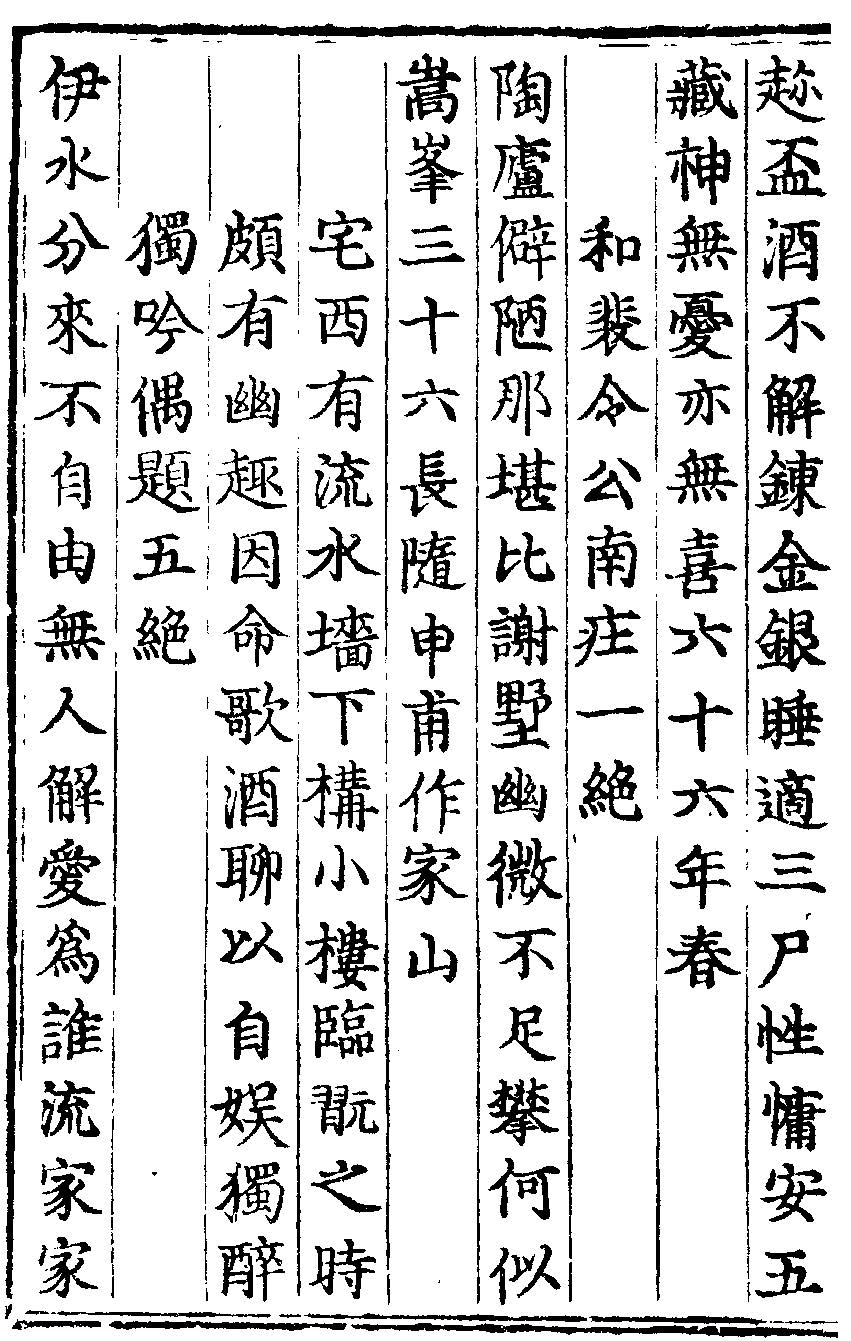 趂盃酒不解鍊金銀睡適三尸性慵安五
藏神無憂亦無喜六十六年春
和裴令公南庄一絶
陶廬僻陋那堪比謝墅幽微不足攀何似
嵩峯三十六長隨申甫作家山
宅西有流水墻下構小樓臨翫之時
頗有幽趣因命歌酒聊以自娱獨醉
獨吟偶題五絶
伊水分來不自由無人解愛爲誰流家家